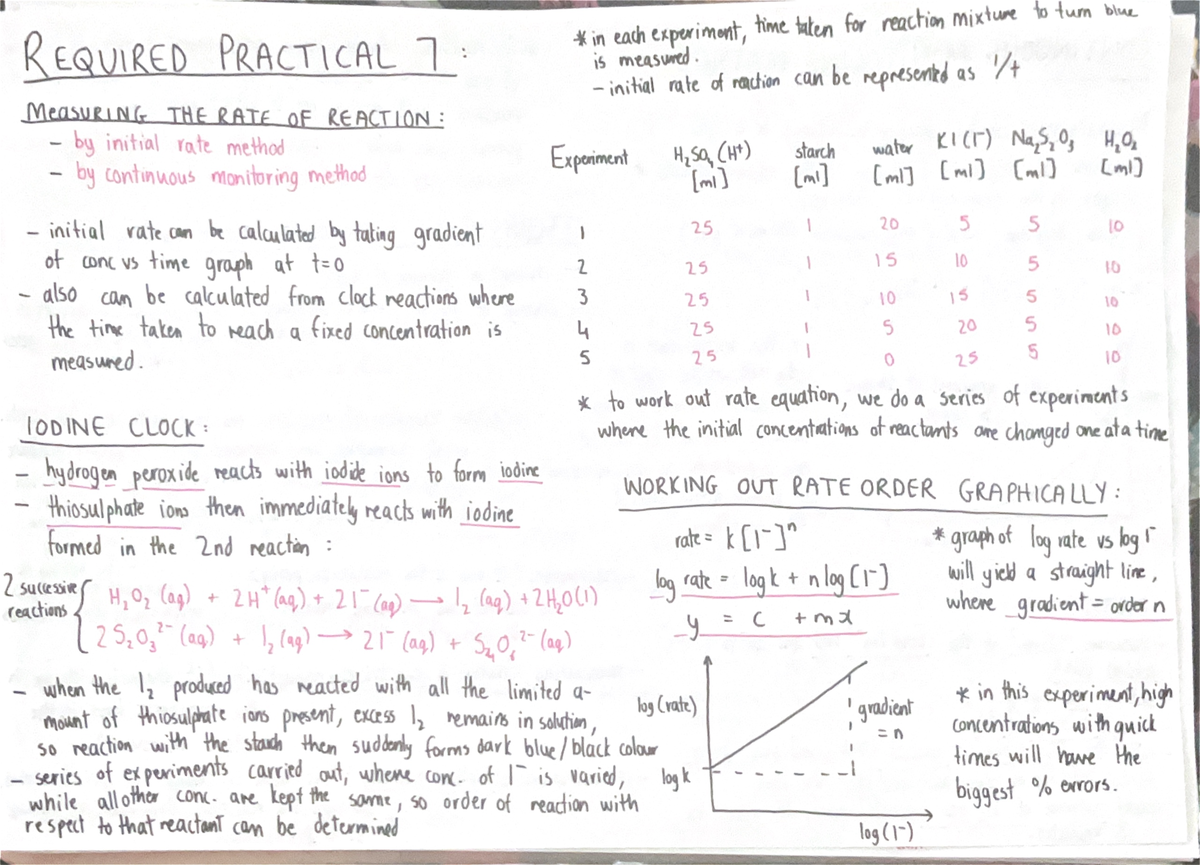 REQUIRED PRACTICAL 7:
MEASURING THE RATE OF REACTION:
– by initial rate method
– by continuous monitoring method
– initial rate can be calculated by taking gradient
of conc vs time graph at t=0
– also can be calculated from clock reactions where
the time taken to reach a fixed concentration is
measured.
IODINE CLOCK:
– hydrogen peroxide reacts with iodide ions to form iodine
– thiosulphate ions then immediately reacts with iodine
formed in the 2nd reaction :
2 successive
reactions
H₂O₂ (aq) + 2H⁺(aq) + 2I⁻(aq) → I₂ (aq) + 2H₂O(l)
2S₂O₃²⁻(aq) + I₂(aq) → 2I⁻(aq) + S₄O₆²⁻(aq)
– when the I₂ produced has reacted with all the limited a-
mount of thiosulphate ions present, excess I₂ remains in solution,
so reaction with the starch then suddenly forms dark blue/black colour
– series of experiments carried out, where conc. of I⁻ is varied,
while all other conc. are kept the same, so order of reaction with
respect to that reactant can be determined
* in each experiment, time taken for reaction mixture to turn blue
is measured.
– initial rate of reaction can be represented as 1/t
Experiment H₂SO₄ (H⁺) starch water KI (I⁻) Na₂S₂O₃ H₂O₂
[ml] [ml] [ml] [ml] [ml] [ml]
1 25 1 20 5 5 10
2 25 1 15 10 5 10
3 25 1 10 15 5 10
4 25 1 5 20 5 10
5 25 1 0 25 5 10
* to work out rate equation, we do a series of experiments
where the initial concentrations of reactants are changed one at a time
WORKING OUT RATE ORDER GRAPHICALLY:
rate = k[I⁻]ⁿ
log rate = log k + n log [I⁻]
y = c + mx
* graph of log rate vs log I⁻
will yield a straight line,
where gradient = order n
log (rate)
log k
gradient
= n
log (I⁻)
* in this experiment, high
concentrations with quick
times will have the
biggest % errors.